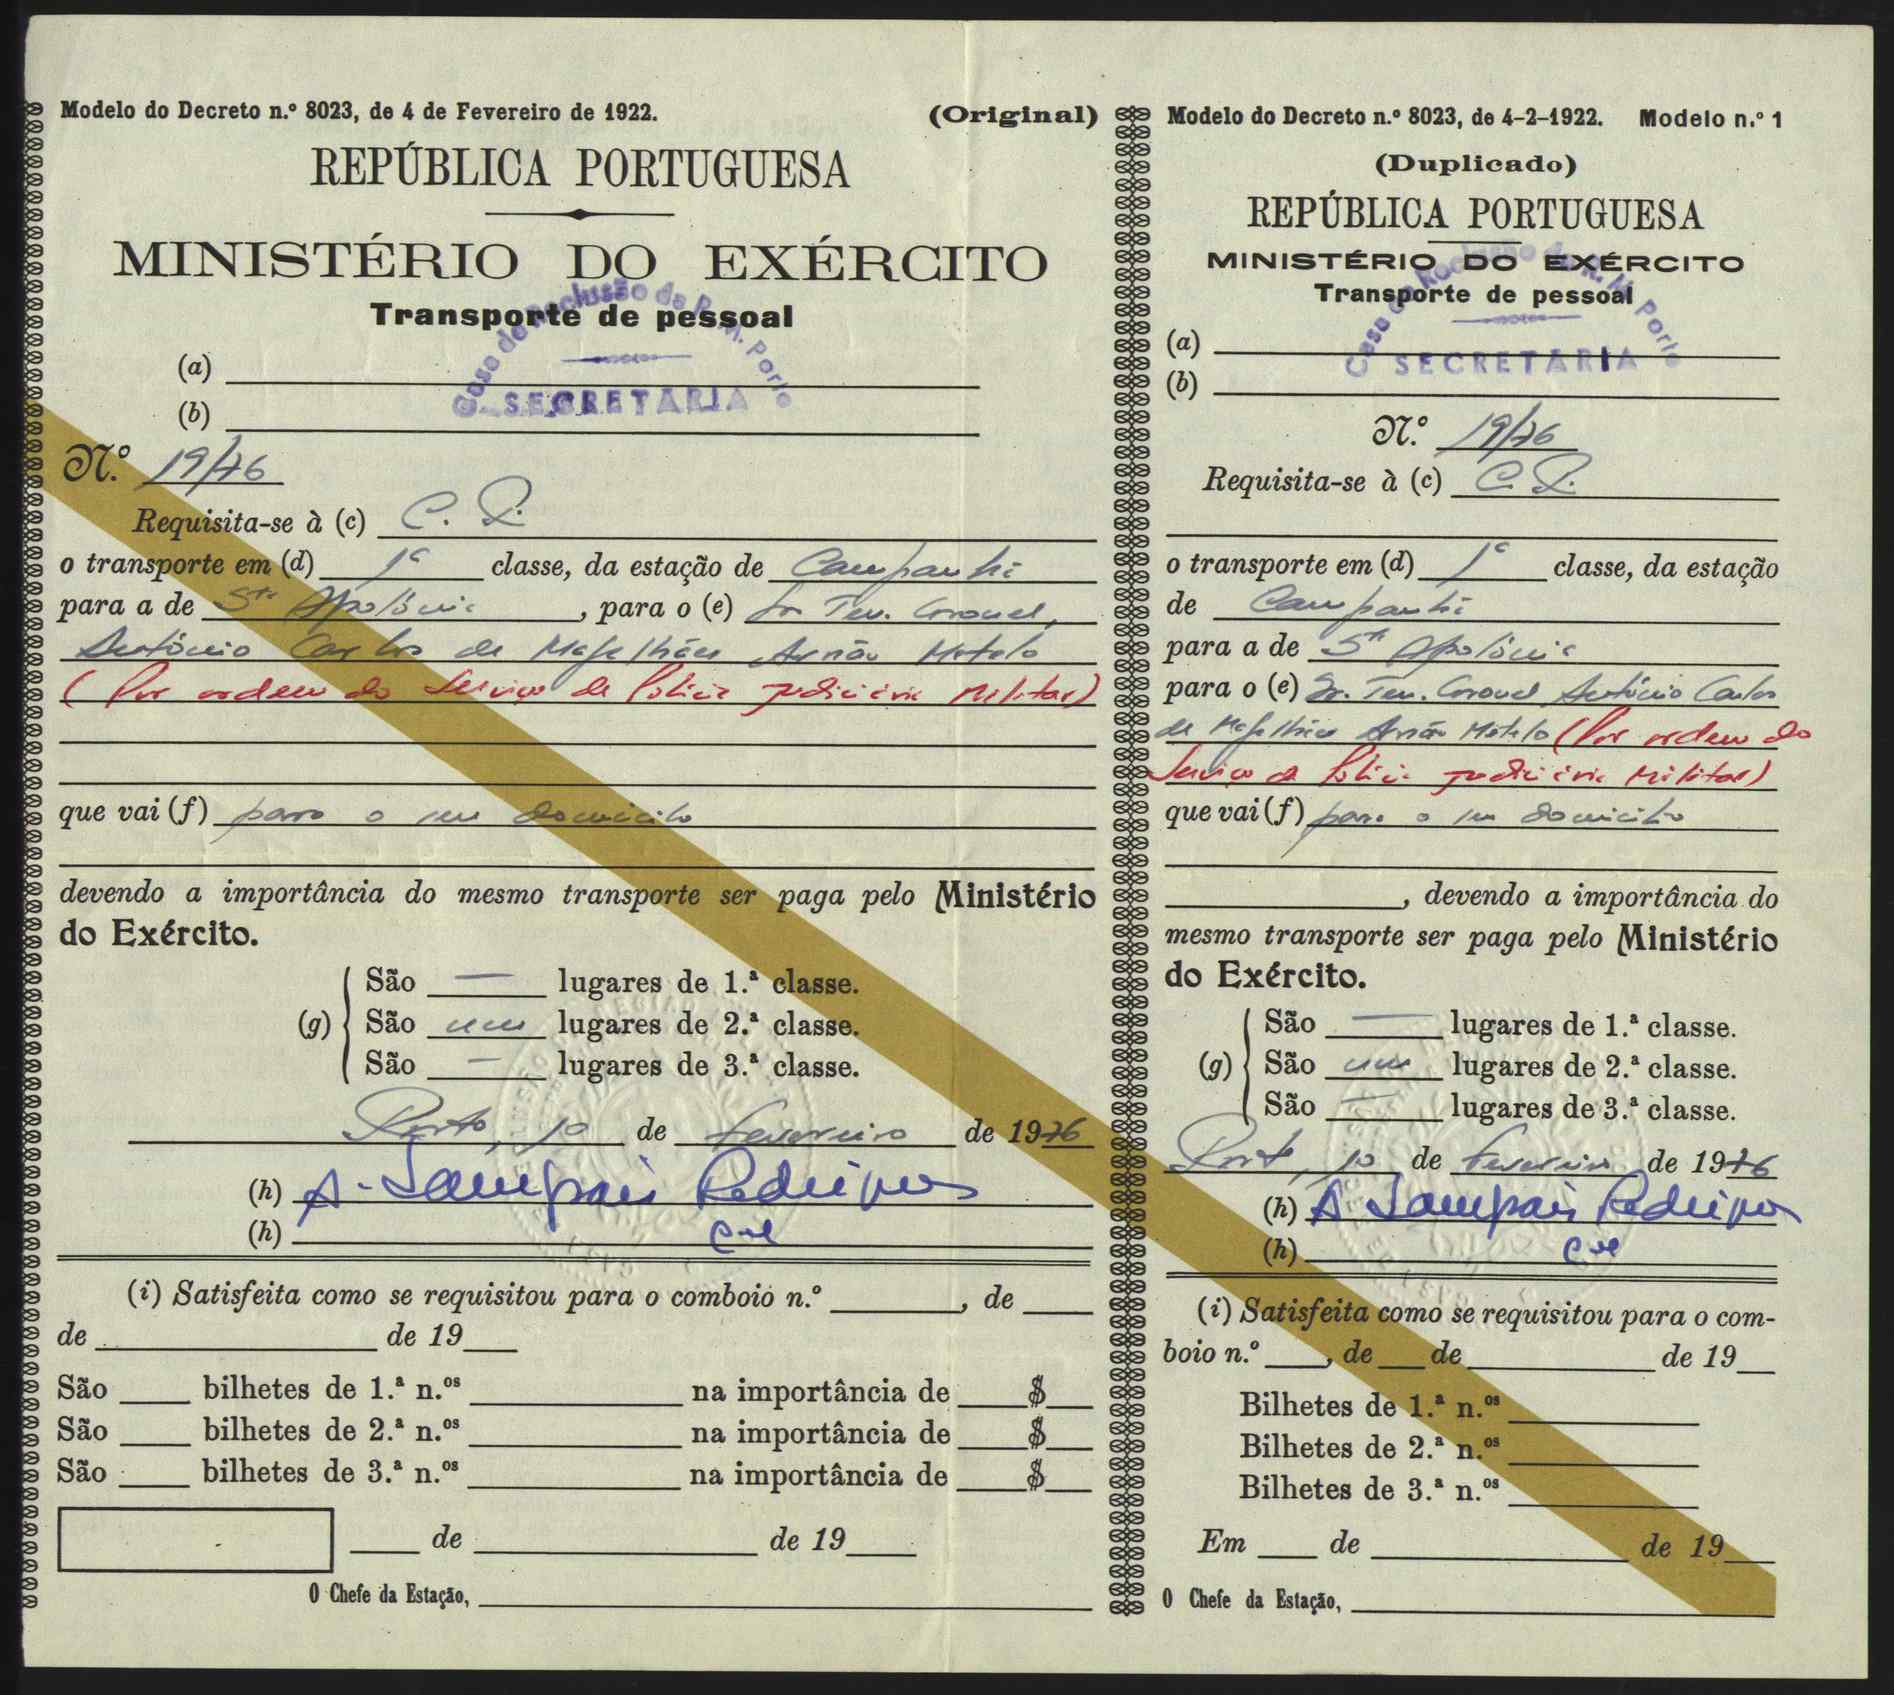 Modelo do Decreto n.º 8023, de 4 de Fevereiro de 1922. (Original)
REPÚBLICA PORTUGUESA
MINISTÉRIO DO EXÉRCITO
Transporte de pessoal
Casa de Reclusão da R. M. Porto
SECRETARIA
(a)
(b)
N.º 19/76
Requisita-se à (c) C. P.
o transporte em (d) 1ª classe, da estação de Campanhã
para a de Stª Apolónia, para o (e) Sr. Ten. Coronel,
António Carlos de Magalhães Arnão Metelo
(Por ordem do Serviço de Polícia Judiciária Militar)
que vai (f) para o seu domicilio
devendo a importância do mesmo transporte ser paga pelo Ministério
do Exército.
São — lugares de 1.ª classe.
(g) São um lugares de 2.ª classe.
São — lugares de 3.ª classe.
Porto, 10 de Fevereiro de 1976
(h) A. Sampaio Rodrigues
(h) Cor
(i) Satisfeita como se requisitou para o comboio n.º , de
de de 19
São bilhetes de 1.ª n.os na importância de $
São bilhetes de 2.ª n.os na importância de $
São bilhetes de 3.ª n.os na importância de $
de de 19
O Chefe da Estação,
Modelo do Decreto n.º 8023, de 4-2-1922. Modelo n.º 1
(Duplicado)
REPÚBLICA PORTUGUESA
MINISTÉRIO DO EXÉRCITO
Transporte de pessoal
Casa de Reclusão da R. M. Porto
SECRETARIA
(a)
(b)
N.º 19/76
Requisita-se à (c) C. P.
o transporte em (d) 1ª classe, da estação
de Campanhã
para a de Stª Apolónia
para o (e) Sr. Ten. Coronel António Carlos
de Magalhães Arnão Metelo (Por ordem do
Serviço de Polícia Judiciária Militar)
que vai (f) para o seu domicilio
, devendo a importância do
mesmo transporte ser paga pelo Ministério
do Exército.
São — lugares de 1.ª classe.
(g) São um lugares de 2.ª classe.
São — lugares de 3.ª classe.
Porto, 10 de Fevereiro de 1976
(h) A Sampaio Rodrigues
(h) Cor
(i) Satisfeita como se requisitou para o com-
boio n.º , de de de 19
Bilhetes de 1.ª n.os
Bilhetes de 2.ª n.os
Bilhetes de 3.ª n.os
Em de de 19
O Chefe da Estação,